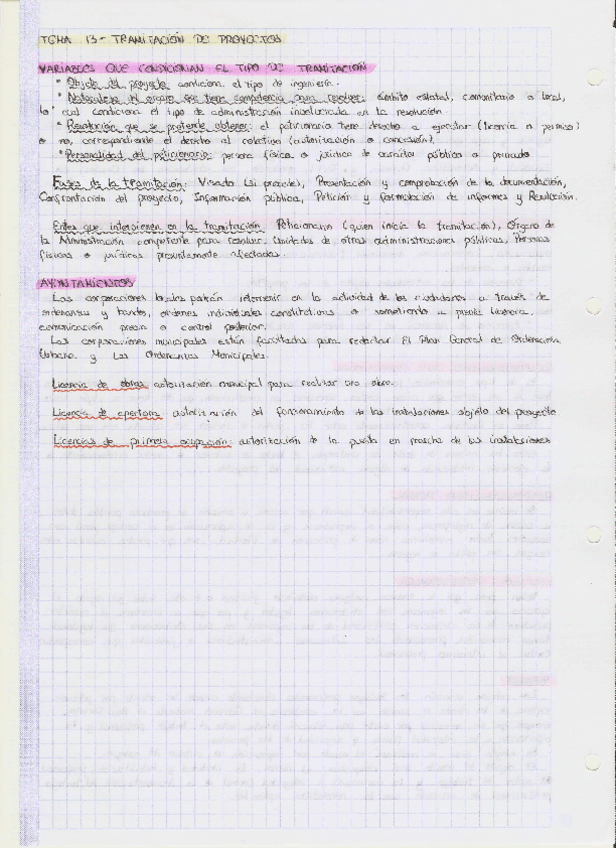 TEMA 13 - TRAMITACIÓN DE PROYECTOS
VARIABLES QUE CONDICIONAN EL TIPO DE TRAMITACIÓN
* Objeto del proyecto condiciona el tipo de ingeniería.
* Naturaleza del órgano que tiene competencia para resolver: ámbito estatal, comunitario o local,
lo cual condiciona el tipo de administración involucrada en la resolución
* Resolución que se pretende obtener: el peticionario tiene derecho a ejecutar (licencia o permiso)
o no, correspondiente el derecho al colectivo (autorización o concesión).
* Personalidad del peticionario: persona física o jurídica de carácter público o privado
Fases de la tramitación: Visado (si procede), Presentación y comprobación de la documentación,
Confrontación del proyecto, Información pública, Petición y formulación de informes y Resolución.
Entes que intervienen en la tramitación: Peticionario (quien inicia la tramitación), Órgano de
la Administración competente para resolver, Unidades de otras administraciones públicas, Personas
físicas o jurídicas presuntamente afectadas.
AYUNTAMIENTOS
Las corporaciones locales podrán intervenir en la actividad de los ciudadanos a través de
ordenanzas y bandos, ordenes individuales constitutivas o sometiendo a previa licencia,
comunicación previa o control posterior.
Las corporaciones municipales están facultadas para redactar El Plan General de Ordenación
Urbana y Las Ordenanzas Municipales.
Licencia de obras autorización municipal para realizar una obra.
Licencia de apertura autorización del funcionamiento de las instalaciones objeto del proyecto
Licencias de primera ocupación: autorización de la puesta en marcha de las instalaciones